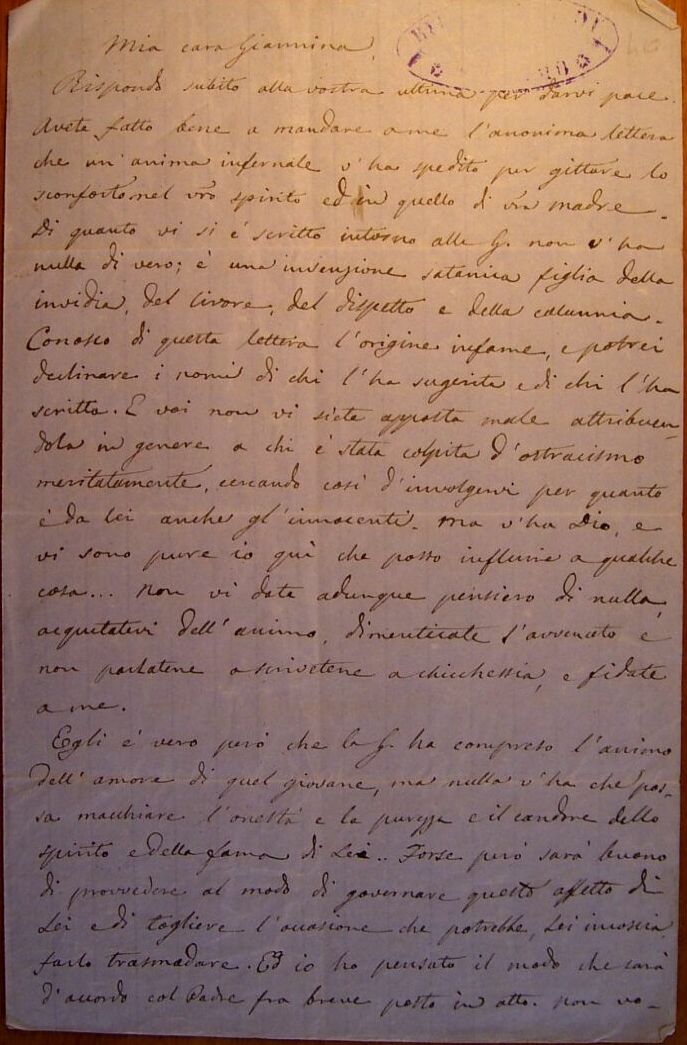 Mia cara Giannina,
Rispondo subito alla vostra ultima per darvi pace.
Avete fatto bene a mandare a me l'anonima lettera
che un'anima infernale v'ha spedito per gittare lo
sconforto nel vro spirito ed in quello di vra madre.
Di quanto vi si è scritto intorno alla G. non v'ha
nulla di vero; è una invenzione satanica figlia della
invidia, del livore, del dispetto e della calunnia.
Conosco di questa lettera l'origine infame, e potrei
declinare i nomi di chi l'ha sugerita e di chi l'ha
scritta. E voi non vi siete apposta male attribuen-
dola in genere a chi è stata colpita d'ostracismo
meritatamente, cercando così d'involgervi per quanto
è da lei anche gl'innocenti. Ma v'ha Dio, e
vi sono pure io quì che posso influire a qualche
cosa... Non vi date adunque pensiero di nulla,
acquetatevi dell'animo, dimenticate l'avvenuto e
non parlatene o scrivetene a chicchessia, e fidate
a me.
Egli è vero però che la G. ha compreso l'animo
dell'amore di quel giovane, ma nulla v'ha che pos-
sa macchiare l'onestà e la purezza e il candore dello
spirito e della fama di Lei.. Forse però sarà buono
di provvedere al modo di governare questo affetto di
Lei e di togliere l'occasione che potrebbe, Lei inconscia,
farlo trasmodare. Ed io ho pensato il modo che sarà
d'accordo col Padre fra breve posto in atto. Non vo-